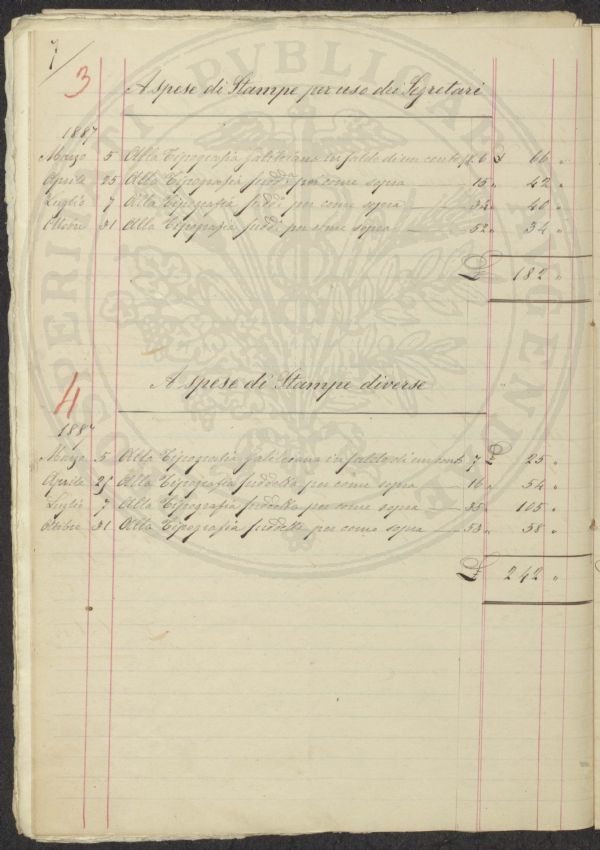 7
3
A spese di Stampe per uso dei Segretari
1887
Marzo 5 Alla Tipografia Galileiana in saldo di un conto 1. 6 £ 66 "
Aprile 25 Alla Tipografia sudd. per come sopra 15 " 42 "
Luglio 7 Alla Tipografia sudd. per come sopra 34 " 40 "
Ottobre 31 Alla Tipografia sudd. per come sopra 52 " 34 "
£ 182 "
4
A spese di Stampe diverse
1887
Marzo 5 Alla Tipografia Galileiana in saldo di un conto 7 £ 25 "
Aprile 25 Alla Tipografia suddetta per come sopra 16 " 54 "
Luglio 7 Alla Tipografia suddetta per come sopra 35 " 105 "
Ottobre 31 Alla Tipografia suddetta per come sopra 53 " 58 "
£ 242 "
PROSPERITATI PUBLICAE AUGENDAE